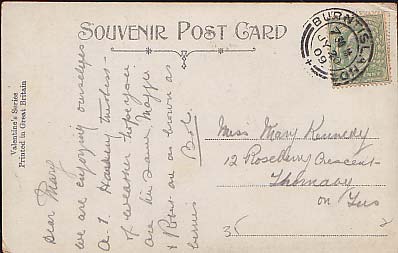 SOUVENIR POST CARD
Valentine's Series
Printed in Great Britain
BURNTISLAND
JY
09
Dear Mary
We are enjoying ourselves
A.1. Having
of weather hope you
are the same. Maggie
+ Rob are as brown as
berries
Bob.
Miss Mary Kennedy
12 Rosebery Crescent
Thornaby
on Tees
35
2